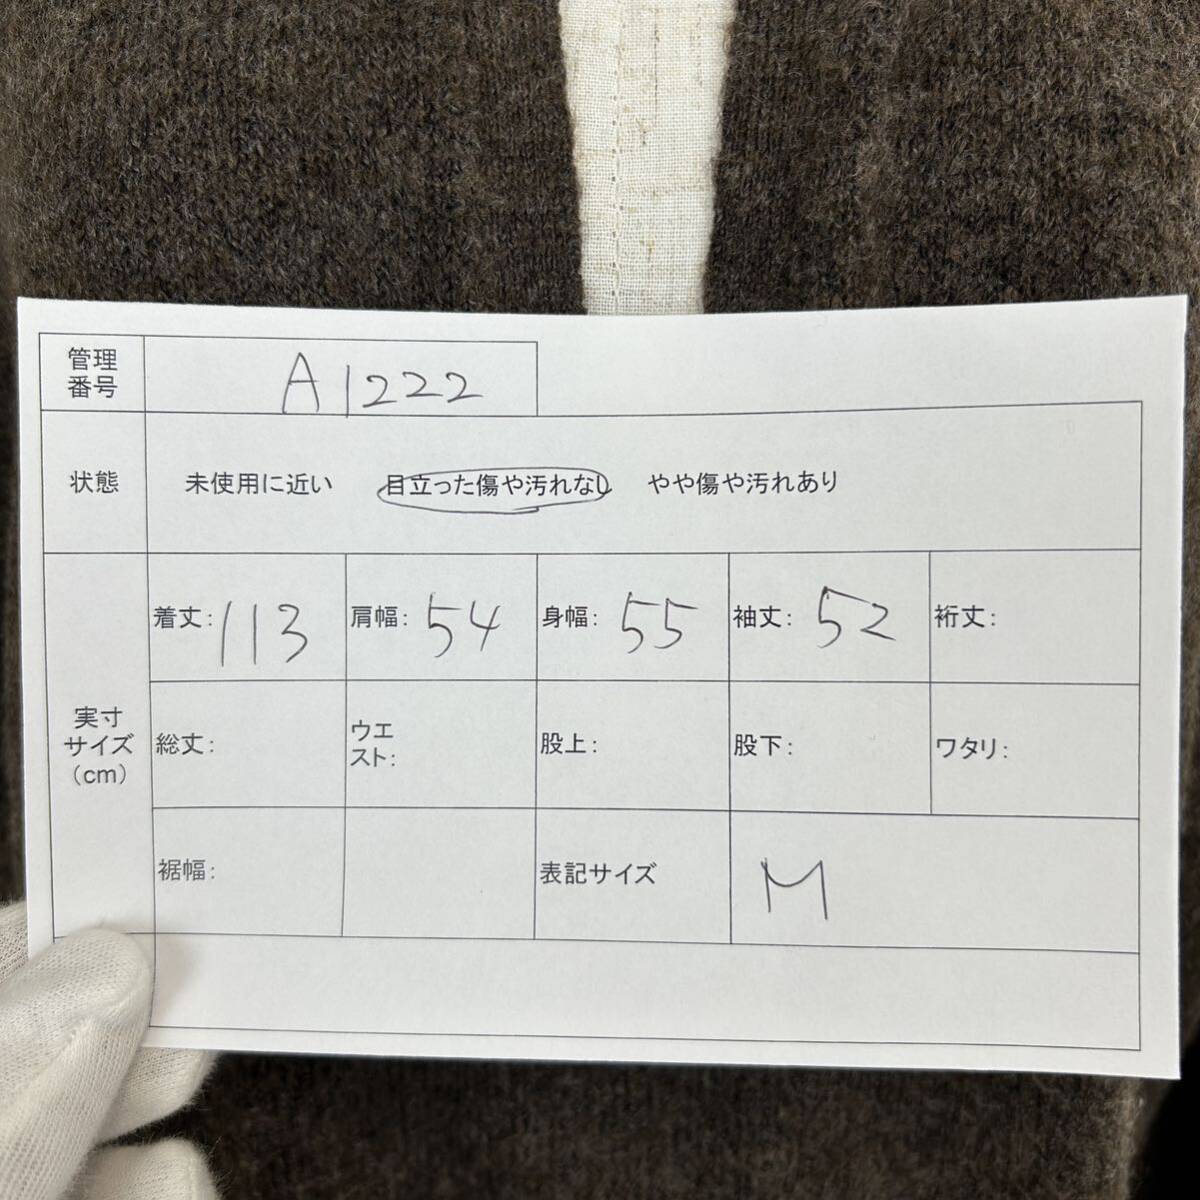 管理
番号
A1222
状態
未使用に近い 目立った傷や汚れなし やや傷や汚れあり
実寸
サイズ
(cm)
着丈: 113 肩幅: 54 身幅: 55 袖丈: 52 裄丈:
総丈: ウエ
スト: 股上: 股下: ワタリ:
裾幅: 表記サイズ M